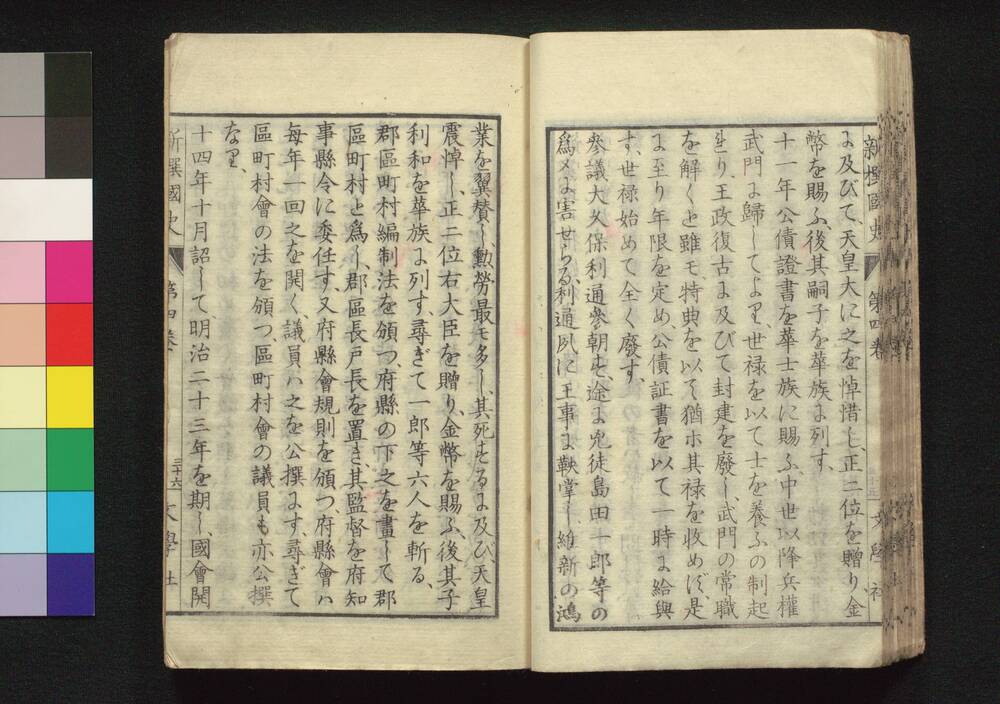 新撰國史 第四卷 文學社
に及びて、天皇大に之を悼惜し、正二位を贈り、金
幣を賜ふ、後其嗣子を華族に列す、
十一年公債證書を華士族に賜ふ、中世以降兵權
武門に歸してより、世禄を以て士を養ふの制起
れり、王政復古に及びて封建を廢し、武門の常職
を解くと雖モ、特典を以て猶ホ其禄を收めず、是
に至り年限を定め、公債証書を以て一時に給與
す、世禄始めて全く廢す、
參議大久保利通參朝ず、途に兇徒島田一郎等の
爲メに害せらる、利通夙に王事に鞅掌し、維新の鴻
業を翼賛し、勲勞最モ多し、其死するに及び、天皇
震悼し、正二位右大臣を贈り、金幣を賜ふ、後其子
利和を華族に列す、尋ぎて一郎等六人を斬る、
郡區町村編制法を頒つ、府縣の下之を畫して郡
區町村と爲し、郡區長戸長を置き、其監督を府知
事縣令に委任す、又府縣會規則を頒つ府縣會ハ
毎年一回之を開く、議員ハ之を公撰にす、尋ぎて
區町村會の法を頒つ、區町村會の議員も亦公撰
なり、
十四年十月詔して、明治二十三年を期し、國會開
新撰國史 第四卷 三十六 文學社